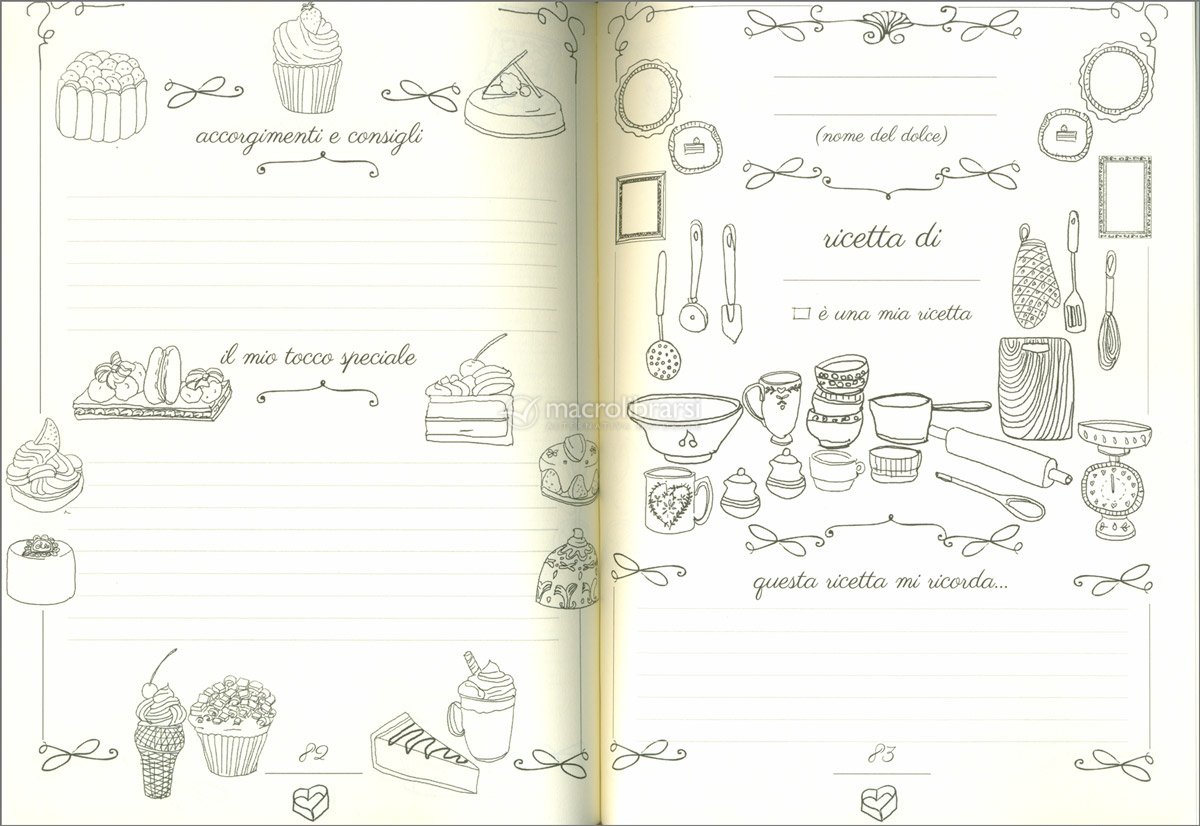 accorgimenti e consigli
il mio tocco speciale
82
(nome del dolce)
ricetta di
è una mia ricetta
questa ricetta mi ricorda...
83
macrolibrarsi